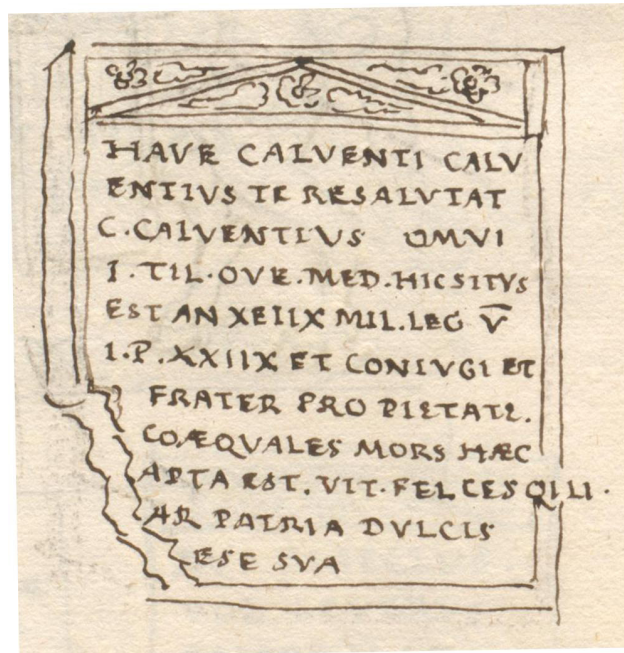 HAVE CALVENTI CALV
ENTIVS TE RESALVTAT
C. CALVENTIVS OMVI
I. TIL. OVE. MED. HICSITVS
EST AN XEIIX MIL. LEG V̅
I. P. XXIIX ET CONIVGI ET
FRATER PRO PIETATE.
COÆQVALES MORS HÆC
APTA EST. VIT. FELCES QILI.
AR PATRIA DVLCIS
ESE SVA